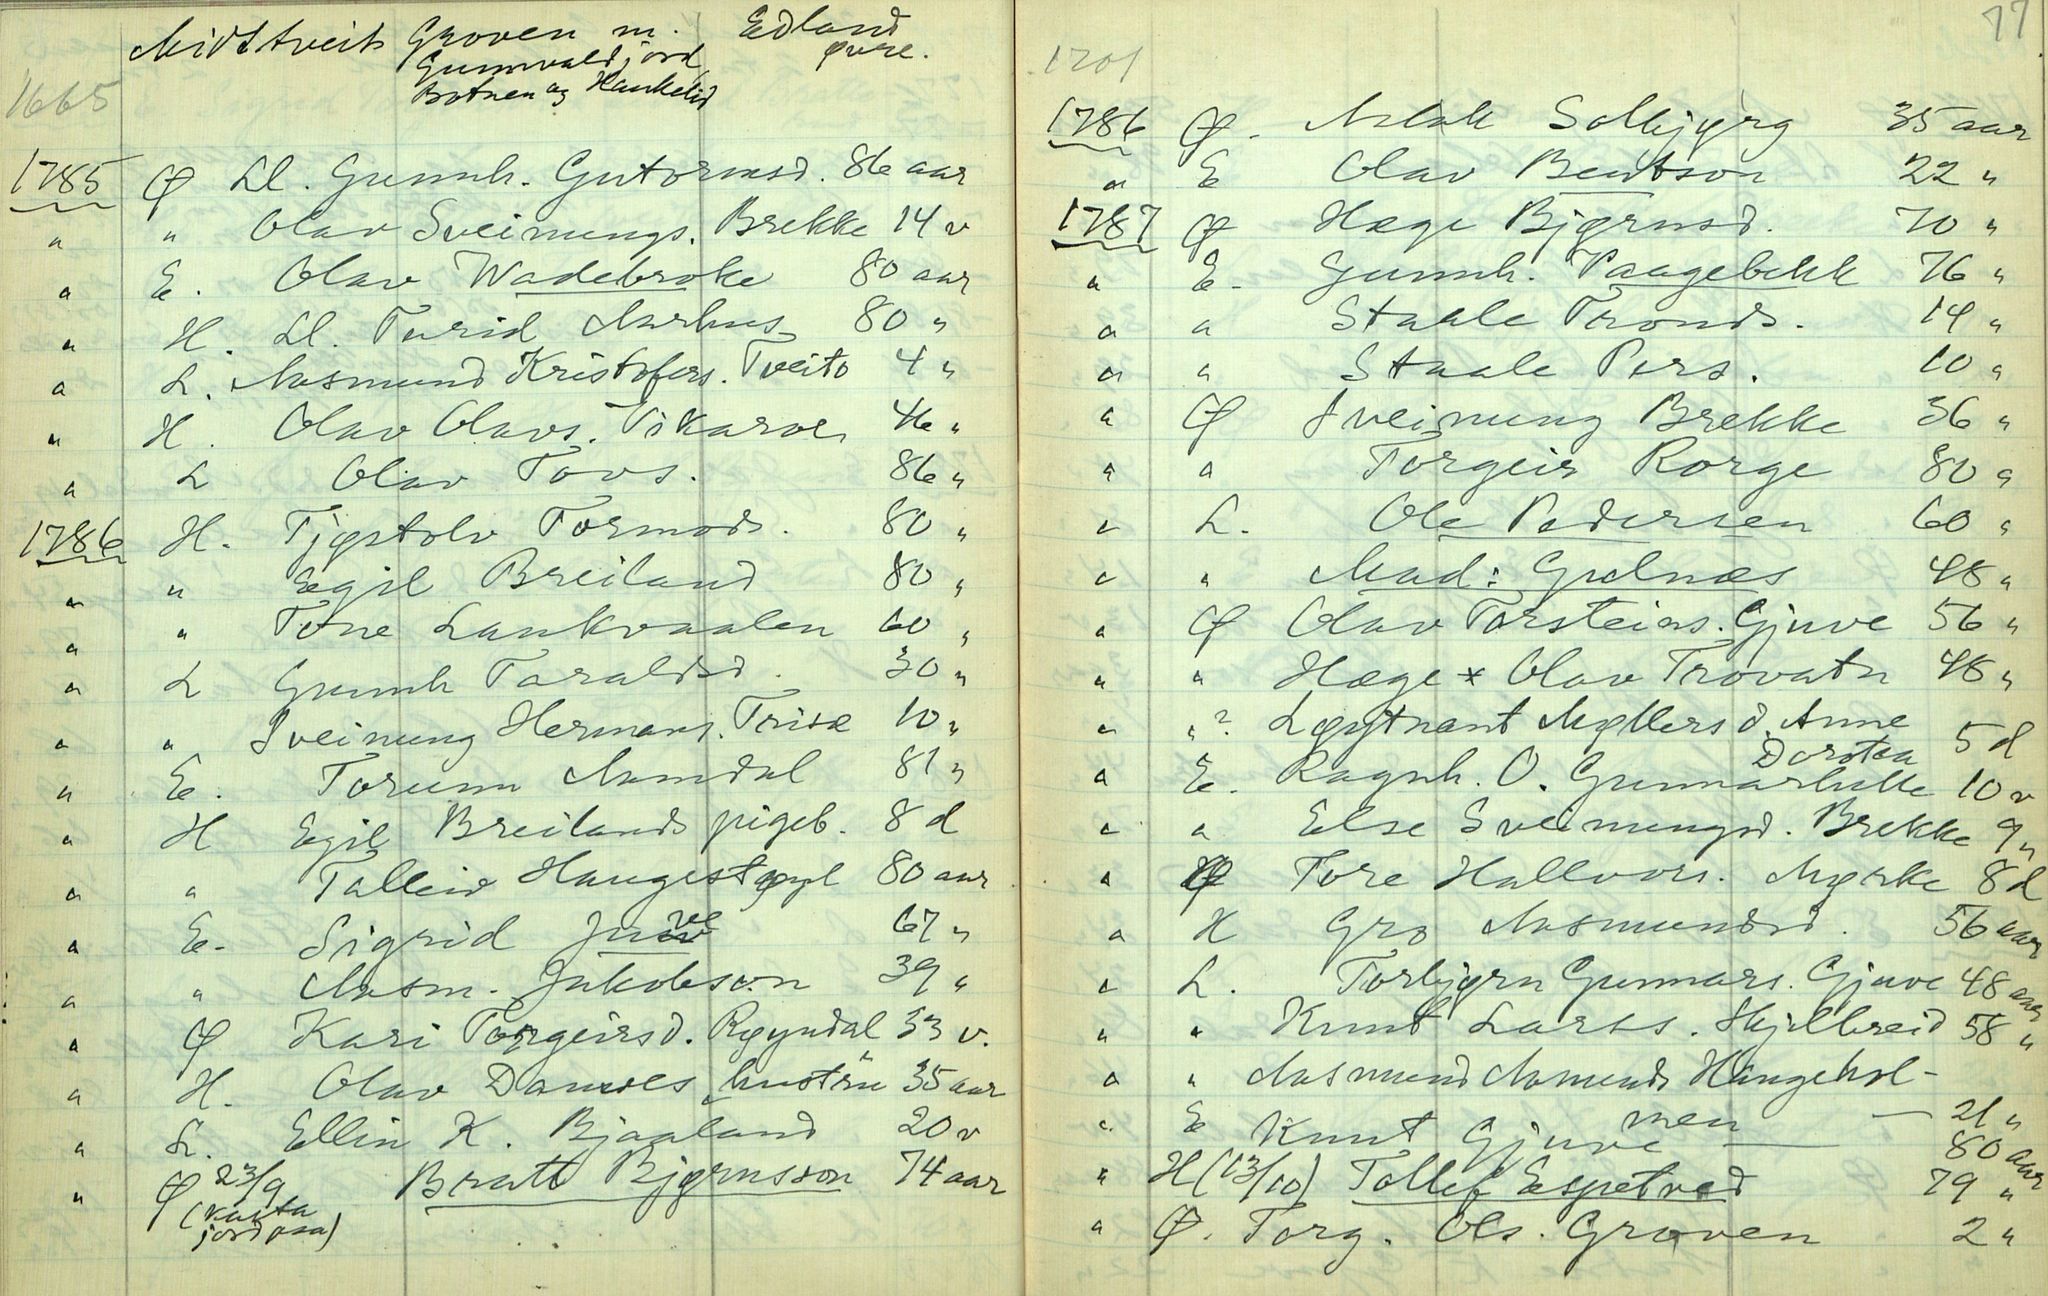 Midtveit Groven m. Edland
Gunnvaldjord, øvre.
Botnen og Haukelid
1665
1785 Ø Ll. Gunnh. Gutormsd. 86 aar
" " Olav Sveinungs. Brekke 14 v
" E. Olav Wadebroke 80 aar
" H. Ll. Turid Aarhus 80 "
" L. Aasmund Kristofers. Tveito 4 "
" H. Olav Olavs. Vikarve 46 "
" L Olav Tovs. 86 "
1786 H. Tjøstolv Tormods. 80 "
" " Egil Breiland 80 "
" " Tone Lankvaalen 60 "
" L Gunnh Taraldsd. 30 "
" " Sveinung Hermans. Trisæ 10 "
" E. Torunn Aamdal 81 "
" H Egil Breilands pigeb. 8 d
" " Talleiv Haugestøyl 80 aar
" E. Sigrid Juve 67 "
" " Aasm. Jakobson 39 "
" Ø Kari Torgeirsd. Røyndal 33 v.
" H. Olav Danvels hustru 35 aar
" L. Ellin K. Bjaaland 20 v
" Ø 23/9 Bratt Bjørnsson 74 aar
(kasta
jord paa)
77
1701
1786 Ø. Aslak Solbjørg 35 aar
" E Olav Bentson 22 "
1787 Ø Hæge Bjørnsd. 70 "
" E. Gunnh. Vaagebekk 76 "
" " Staale Tronds. 14 "
" " Staale Pers. 10 "
" Ø Sveinung Brekke 36 "
" " Torgeir Rorge 80 "
" L. Ole Pedersen 60 "
" " Mad: Gulnæs 48 "
" Ø Olav Torsteins. Gjuve 56 "
" " Hæge x Olav Trovatn 48 "
" "? Løytnant Møllers d. Anne
Dorotea 5 d
" E. Ragnh. O. Gunnarhelle 10 v
" " Else Sveinungsd. Brekke 9 "
" Ø Tore Hallvors. Myrke 8 d
" H Gro Aasmundsd. 56 aar
" L. Torbjørn Gunnars. Gjuve 48 aar
" " Knut Larss. Skjelbreid 58 "
" " Aasmund Aamunds Haugehol-
men — 21 "
" E Knut Gjuve 80 aar
" H (13/10) Tollef Espetved 79 "
" Ø. Torg. Ols. Groven 2 "